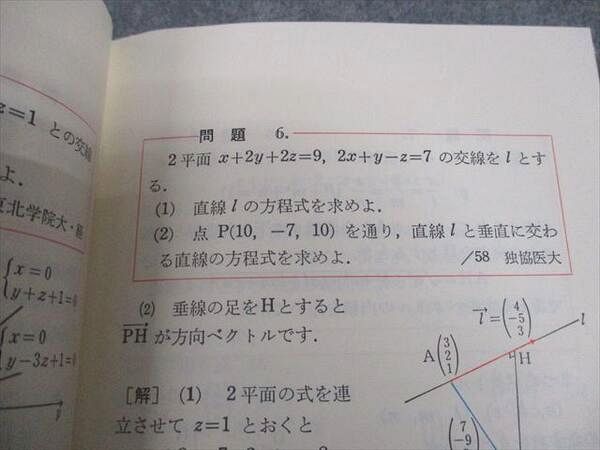 z=1 との交線
よ.
東北学院大・
x=0
y+z+1=0
x=0
y-3z+1=0
問題 6.
2平面 x+2y+2z=9, 2x+y-z=7 の交線を l とす
る.
(1) 直線 l の方程式を求めよ.
(2) 点 P(10, -7, 10) を通り, 直線 l と垂直に交わ
る直線の方程式を求めよ.
/58 独協医大
(2) 垂線の足をHとすると
PH が方向ベクトルです.
[解] (1) 2平面の式を連
立させて z=1 とおくと
l=(4 -5 3)
l
A(3 2 1)
H
7
-9